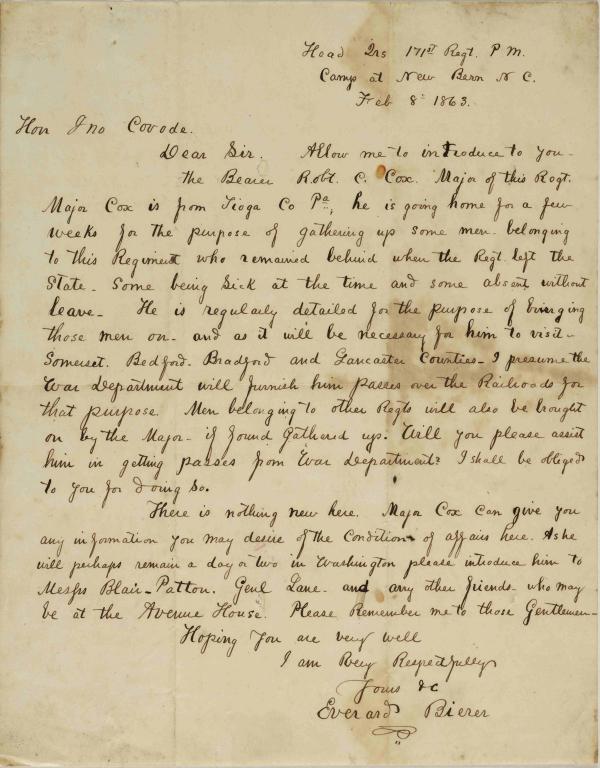 Head Qrs 171st Regt. P. M.
Camp at New Bern N C.
Feb 8th 1863.
Hon Jno Covode.
Dear Sir. Allow me to introduce to you
the Bearer Robt. C. Cox. Major of this Regt.
Major Cox is from Tioga Co Pa., he is going home for a few
weeks for the purpose of gathering up some men belonging
to this Regiment who remained behind when the Regt. left the
State. Some being sick at the time and some absent without
leave. He is regularly detailed for the purpose of bringing
those men on. and as it will be necessary for him to visit
Somerset. Bedford. Bradford and Lancaster Counties. I presume the
War Department will furnish him passes over the Railroads for
that purpose. Men belonging to other Regts will also be brought
on by the Major. if found gathered up. Will you please assist
him in getting passes from War Department? I shall be obliged
to you for doing so.
There is nothing new here. Major Cox can give you
any information you may desire of the Condition of affairs here. As he
will perhaps remain a day or two in Washington please introduce him to
Messrs Blair. Patton. Genl Lane. and any other friends who may
be at the Avenue House. Please Remember me to those Gentlemen
Hoping You are very well
I am Very Respectfully
Yours &c
Everard Bierer